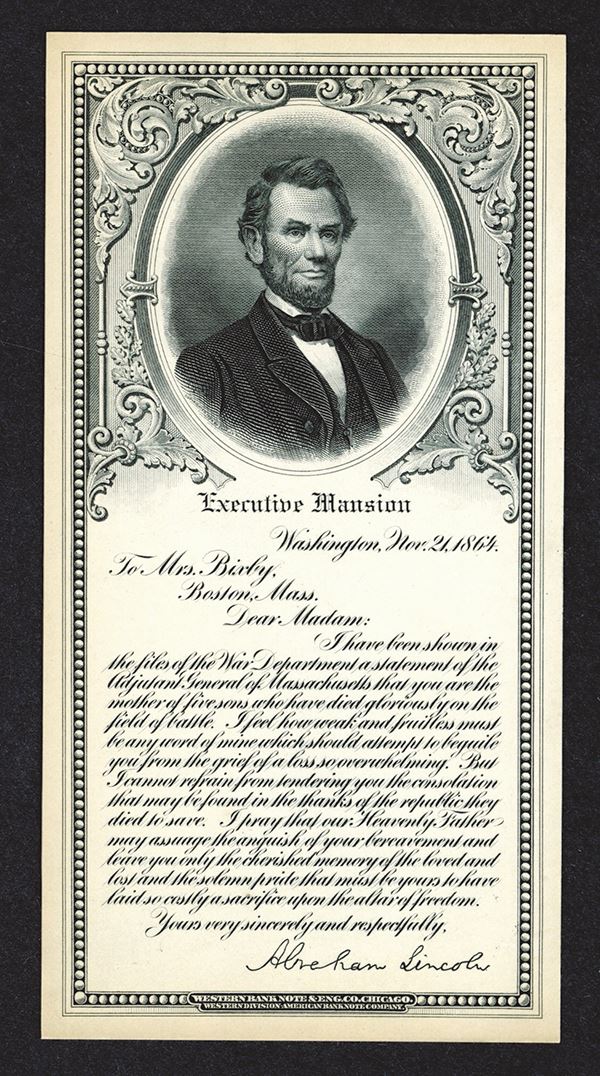 Executive Mansion
Washington, Nov. 21, 1864.
To Mrs. Bixby,
Boston, Mass.
Dear Madam:
I have been shown in
the files of the War Department a statement of the
Adjutant General of Massachusetts that you are the
mother of five sons who have died gloriously on the
field of battle. I feel how weak and fruitless must
be any word of mine which should attempt to beguile
you from the grief of a loss so overwhelming. But
I cannot refrain from tendering you the consolation
that may be found in the thanks of the republic they
died to save. I pray that our Heavenly Father
may assuage the anguish of your bereavement and
leave you only the cherished memory of the loved and
lost and the solemn pride that must be yours to have
laid so costly a sacrifice upon the altar of freedom.
Yours very sincerely and respectfully,
Abraham Lincoln
WESTERN BANK NOTE & ENG. CO. CHICAGO.
WESTERN DIVISION AMERICAN BANK NOTE COMPANY.